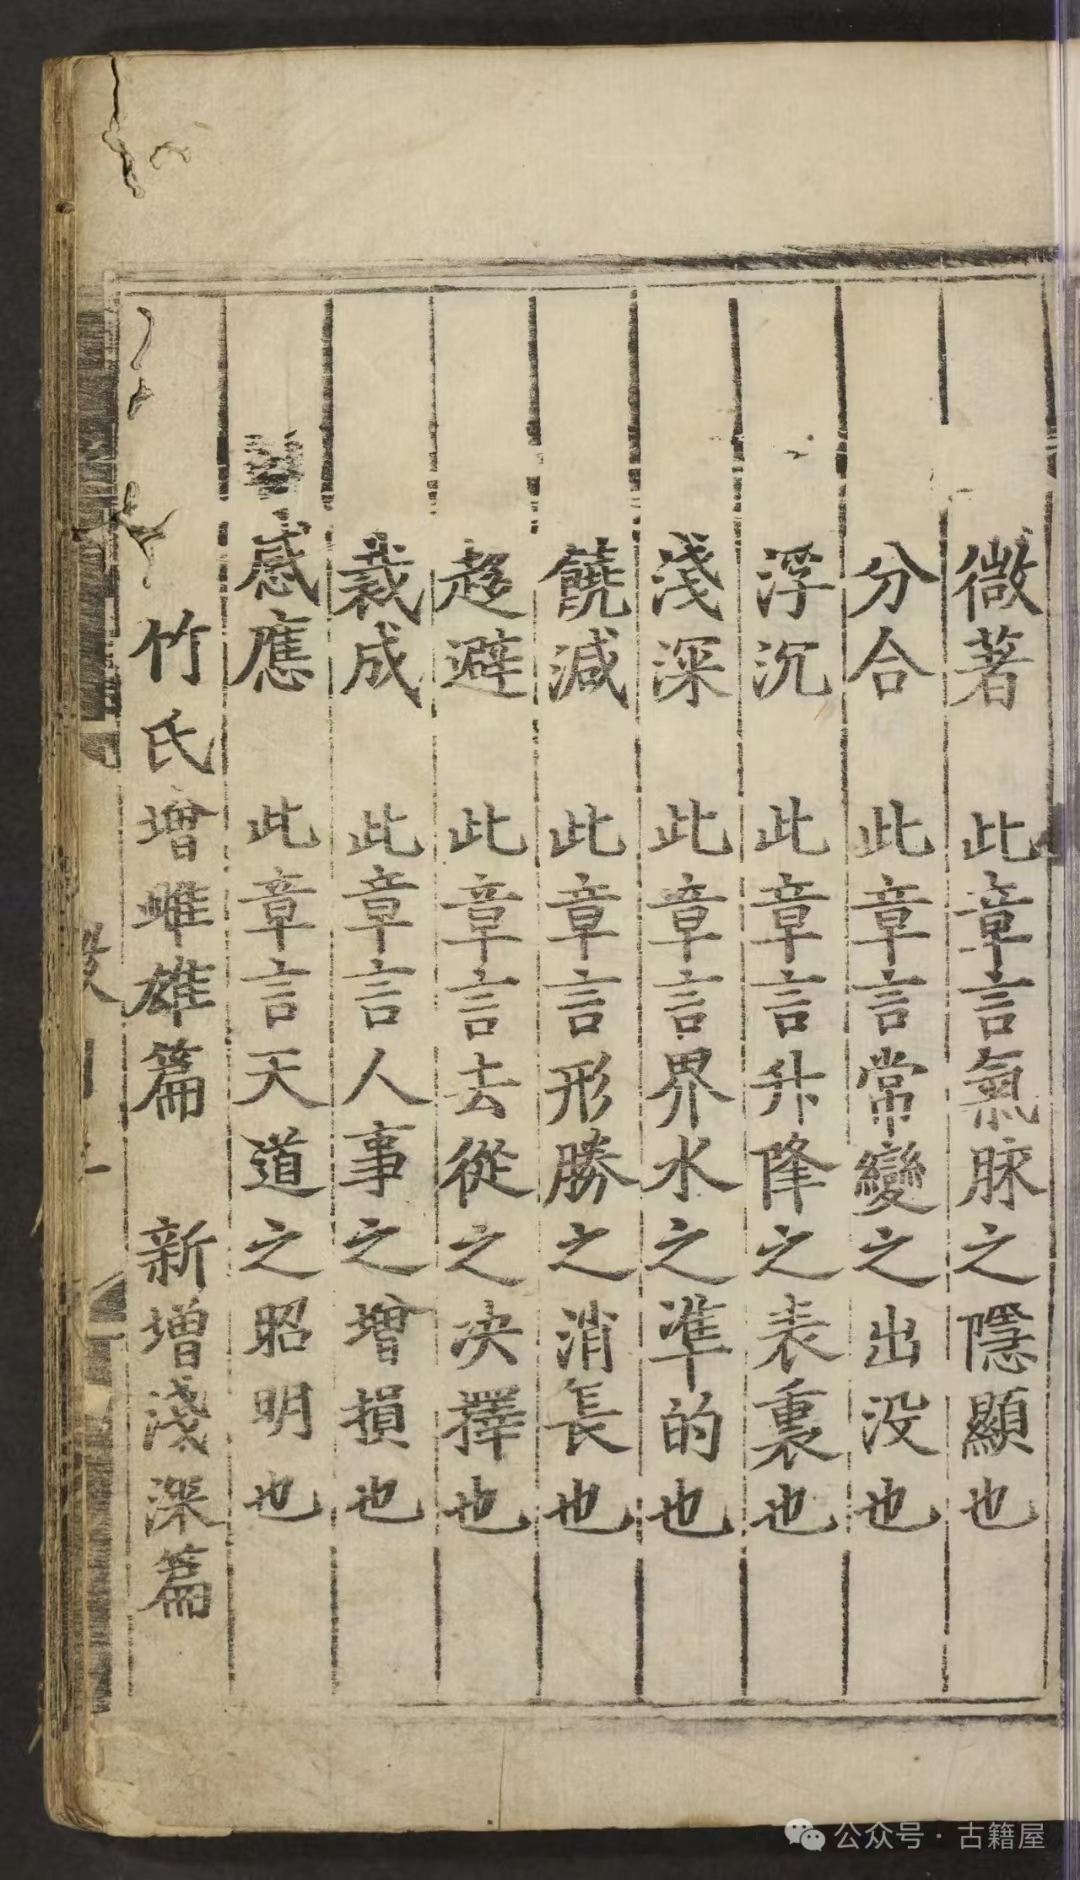 微著 此章言氣脉之隱顯也
分合 此章言常變之出没也
浮沉 此章言升降之表裏也
淺深 此章言界水之準的也
饒減 此章言形勝之消長也
趍避 此章言去從之决擇也
裁成 此章言人事之增損也
感應 此章言天道之昭明也
竹氏增雌雄篇 新增淺深篇
公众号·古籍屋